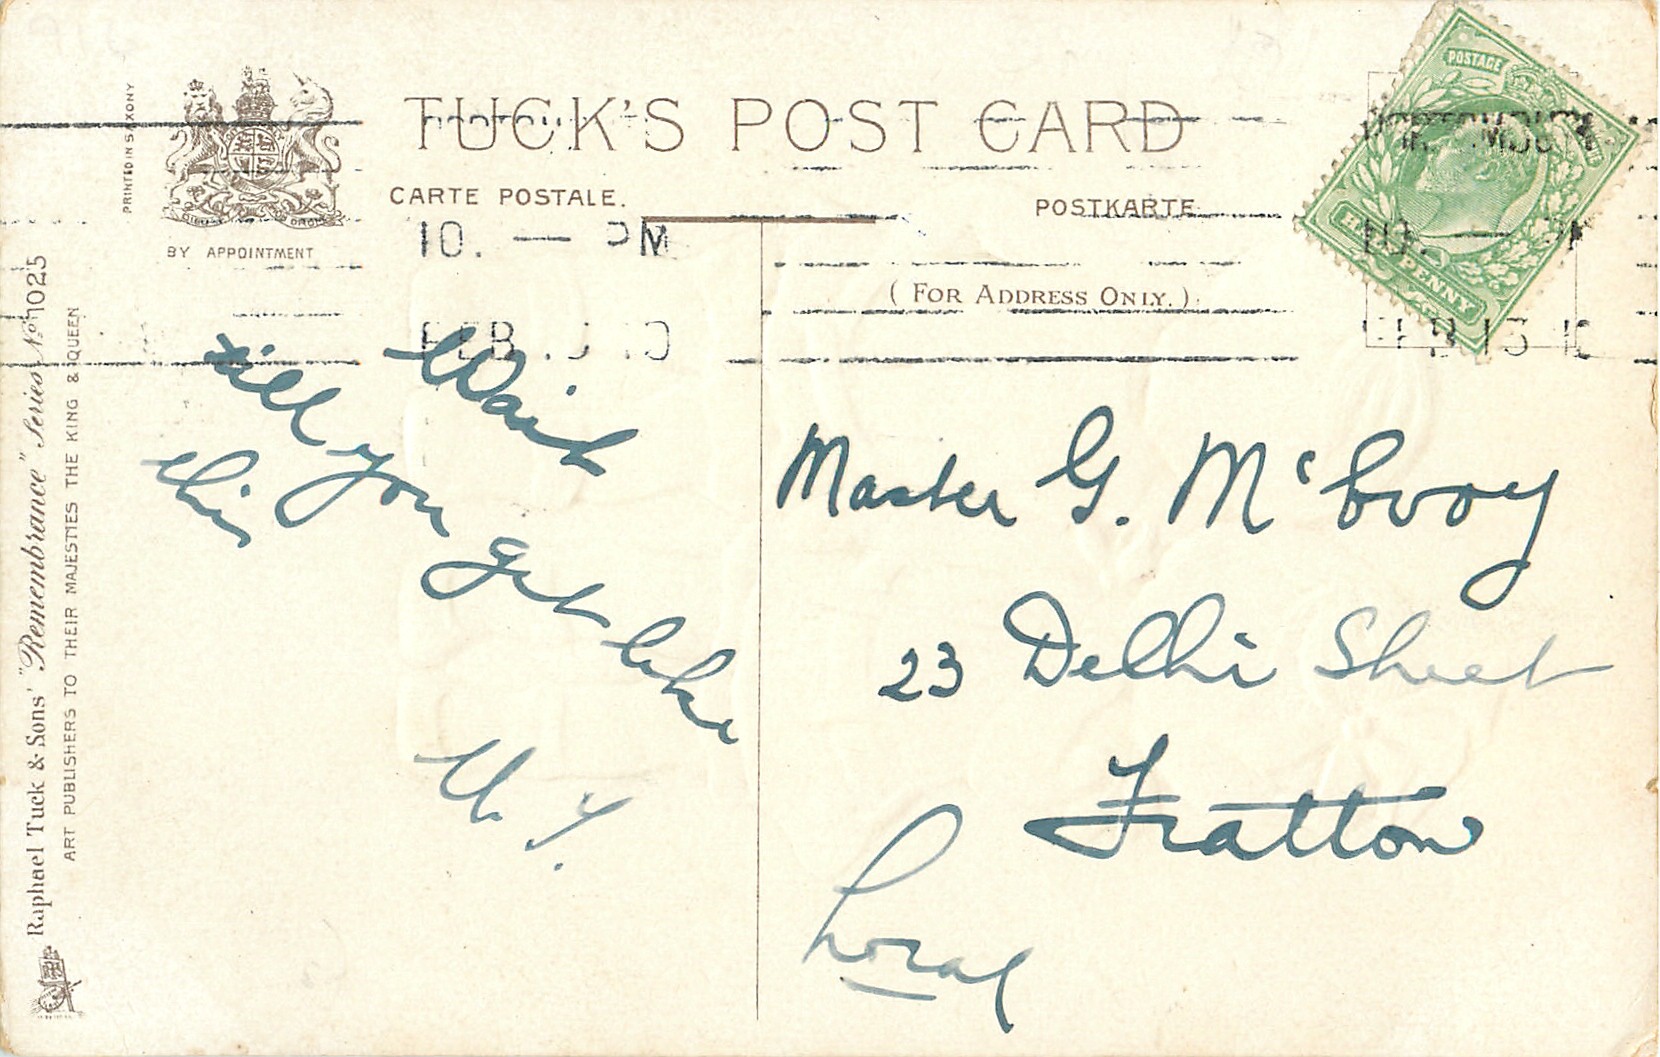 TUCK'S POST CARD
CARTE POSTALE.
POSTKARTE
(FOR ADDRESS ONLY.)
PRINTED IN SAXONY
BY APPOINTMENT
10. — PM
FEB 13 10
POSTAGE
PENNY
Raphael Tuck & Sons' "Remembrance" Series No 1025
ART PUBLISHERS TO THEIR MAJESTIES THE KING & QUEEN
Wait
till you get like
this
Master G. McEvoy
23 Delhi Street
Fratton
Local